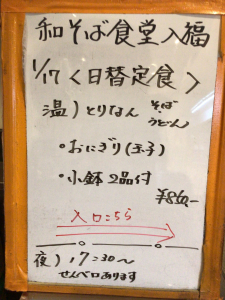 和そば食堂入福
1/17〈日替定食〉
温)とりなん そば うどん
・おにぎり(玉子)
・小鉢2品付
¥860-
入口こちら
夜)17:30〜
せんベロあります